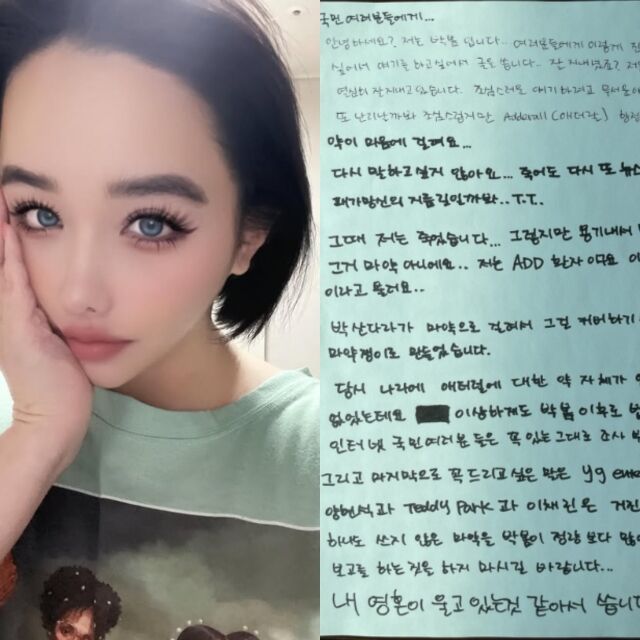 국민 여러분들에게...
안녕하세요? 저는 박봄 입니다.. 여러분들에게 이렇게
싶어서 얘기를 하고싶어서 글을 씁니다.. 잘 지내셨죠?
열심히 잘지내고있습니다. 조심스러운 얘기하려고
또 난리난까봐 조심스럽지만 Adderall (애더럴)
약이 마음에 걸려요...
다시 말하고싶지 않아요... 죽어도 다시 또 뉴스
패가망신의 지름길일까봐.. T.T.
그때 저는 죽었습니다... 그렇지만 용기내서
그거 마약 아니에요.. 저는 ADD 환자 이구요
이라고 들려요..
박산다라가 마약으로 걸려서 그걸 커버하기
마약쟁이로 만들었습니다.
당시 나라에 애더럴에 대한 약 자체가
없었는데요 이상하게도 박봄 이후로
인터넷 국민여러분 들은 꼭 있는 그대로 조사
그리고 마지막으로 꼭 드리고 싶은 말은 yg
양현석과 Teddy Park과 이채린은
하나도 쓰지 않은 마약을 박봄이 정량 보다
보고를 하는 것을 하지 마시길 바랍니다...
내 영혼이 울고 있는것 같아서 씁니다